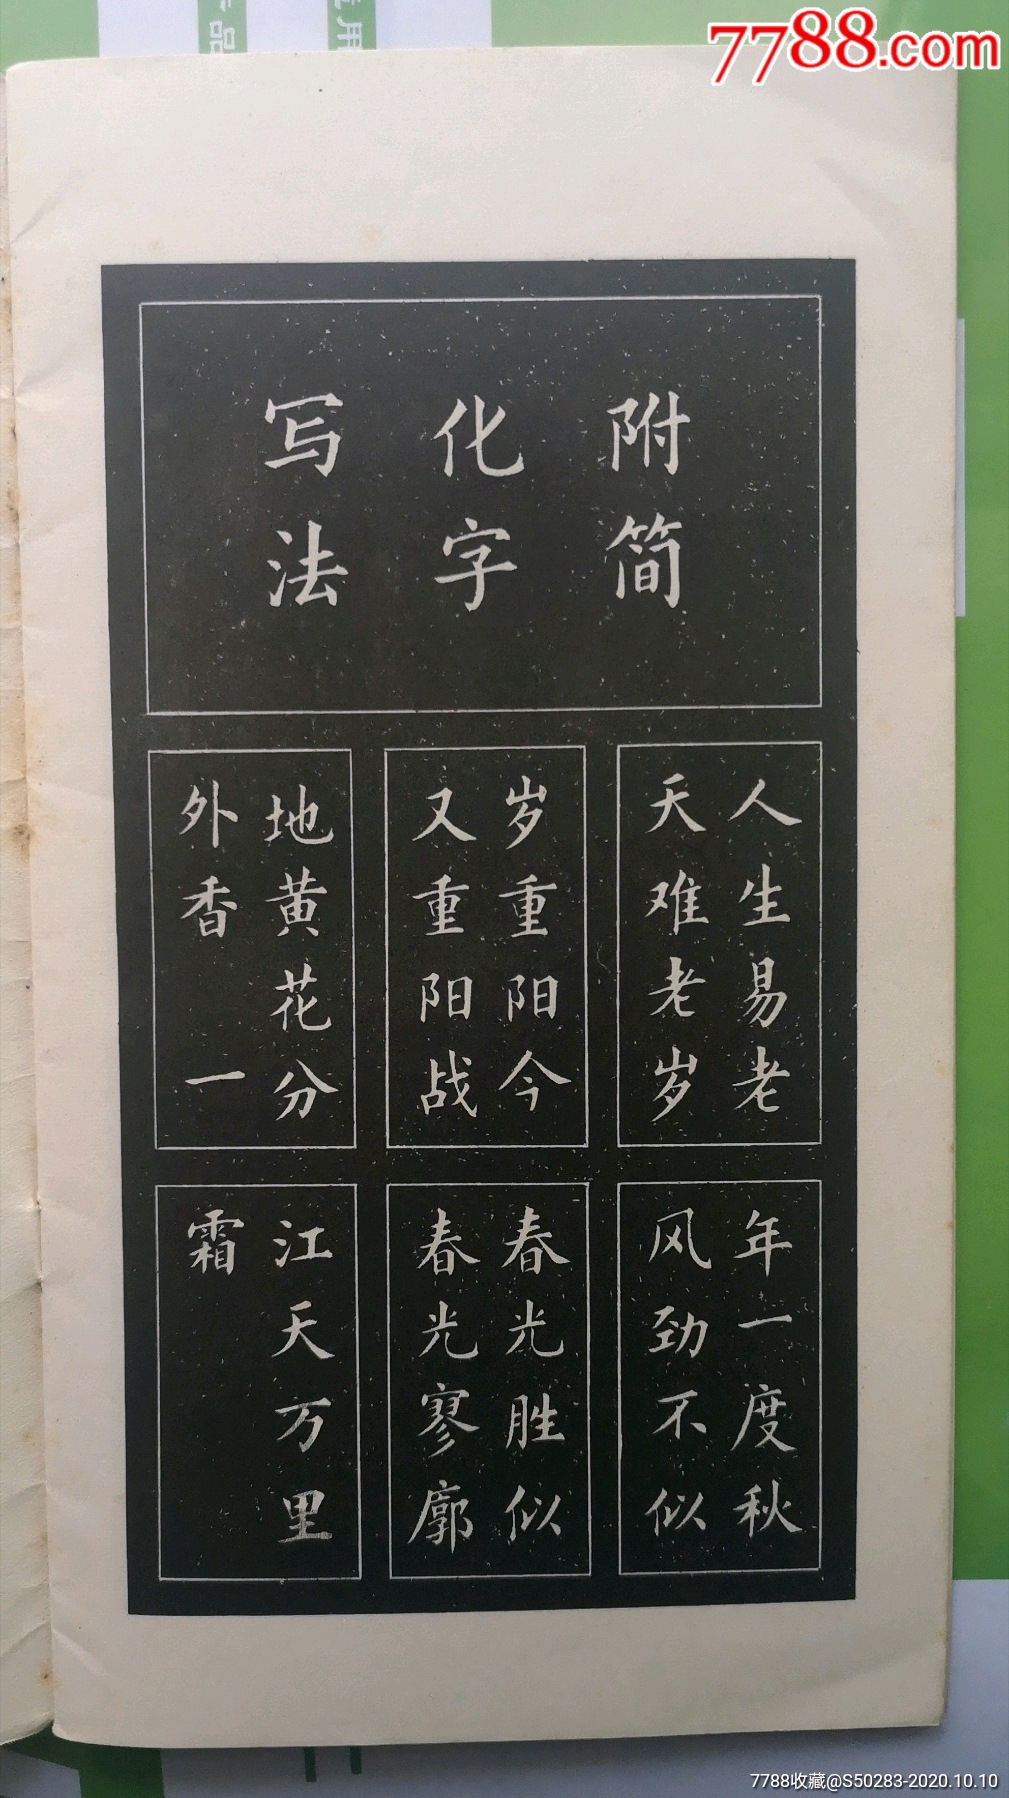 7788.com
附简
化字
写法
人生易老
天难老岁
岁重阳今
又重阳战
地黄花分
外香一
年一度秋
风劲不似
春光胜似
春光寥廓
江天万里
霜
7788收藏@S50283-2020.10.10